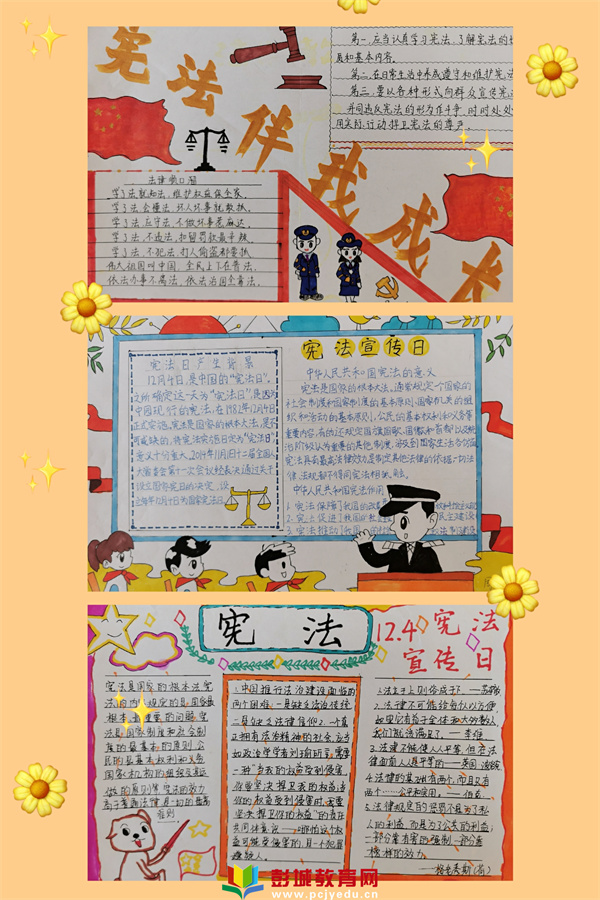 宪法伴我成长
第一,应当认真学习宪法,了解宪法的
质和基本内容。
第二,在日常生活中养成遵守和维护宪法
第三,要以各种形式向群众宣传宪
并同违反宪法的形为作斗争,时时处处
用实际行动捍卫宪法的尊严。
法律顺口溜
学习法就知法,维护权应保全家,
学习法会懂法,坏人坏事就敢抓,
学习法应守法,不做坏事惹麻达,
学习法,不违法,扣留罚款最辛辣,
学习法,不犯法,打人偷盗都要抓,
伟大祖国叫中国,全民上下在普法,
依法办事不离法,依法治国全靠法。
宪法宣传日
宪法日产生背景
12月4日,是中国的“宪法日”,
之所确定这一天为“宪法日”,是因为
中国现行的宪法,在1982年12月4日
正式实施。宪法是国家的根本大法,是不
可或缺的,将宪法实施日定为“宪法日”
意义十分重大。2014年11月1日十二届全国
大常委会第十一次会议经表决通过关于
设立国家宪法日的决定,设
立每年12月4日为国家宪法日
中华人民共和国宪法的意义
宪法是国家的根本大法,通常规定一个国家的
社会制度和国家制度的基本原则,国家机关的组
织和活动的基本原则,公民的基本权利和义务等
重要内容,有的还规定国旗国歌、国徽和首都以及统
治阶级认为重要的其他制度,涉及到国家生活各方面
宪法具有最高法律效力,是制定其他法律的依据,一切法
律、法规都不得同宪法相抵触。
中华人民共和国宪法作用
1. 宪法保障了我国的改革
2. 宪法促进了我国的社会
民主建设
3. 宪法推动了我国
宪法
12.4宪法
宣传日
宪法是国家的根本法,宪
法的内容规定的是国家最
根本、最重要的问题,宪
法是国家制度和社会制
度的最基本的原则,公
民的最基本权利和义务
国家机构的组织及其运
做的原则等,宪法的效力
高于普通法律,是一切的最高
准则。
1.中国推行法治建设面临的
两个困难,一是缺乏法治传统
二是缺乏法律信仰。一个真
正拥有法治精神的社会,应当
如政治学学者刘瑜所言,需要
一种“当我的权益受到侵害,
你要坚决捍卫我的权益;当
你的权益受到侵害时,我要
坚决捍卫你的权益”的责任
共同体意识——哪怕这个权
可能受侵害的,是一个犯罪
嫌疑人。
2.法律不可能给每个人以方便,
如果它有益于全体和大多数人,
我们就该满足了。——李维
4.法律的基础有两个,而且只有
两个……公平和实用。——伯克
5.法律规定的惩罚不是为了私
人的利益,而是为了公共的利益;
一部分靠有害的强制,一部分靠
榜样的效力。
——格老秀斯(荷)
彭城教育网
www.pcjyedu.cn